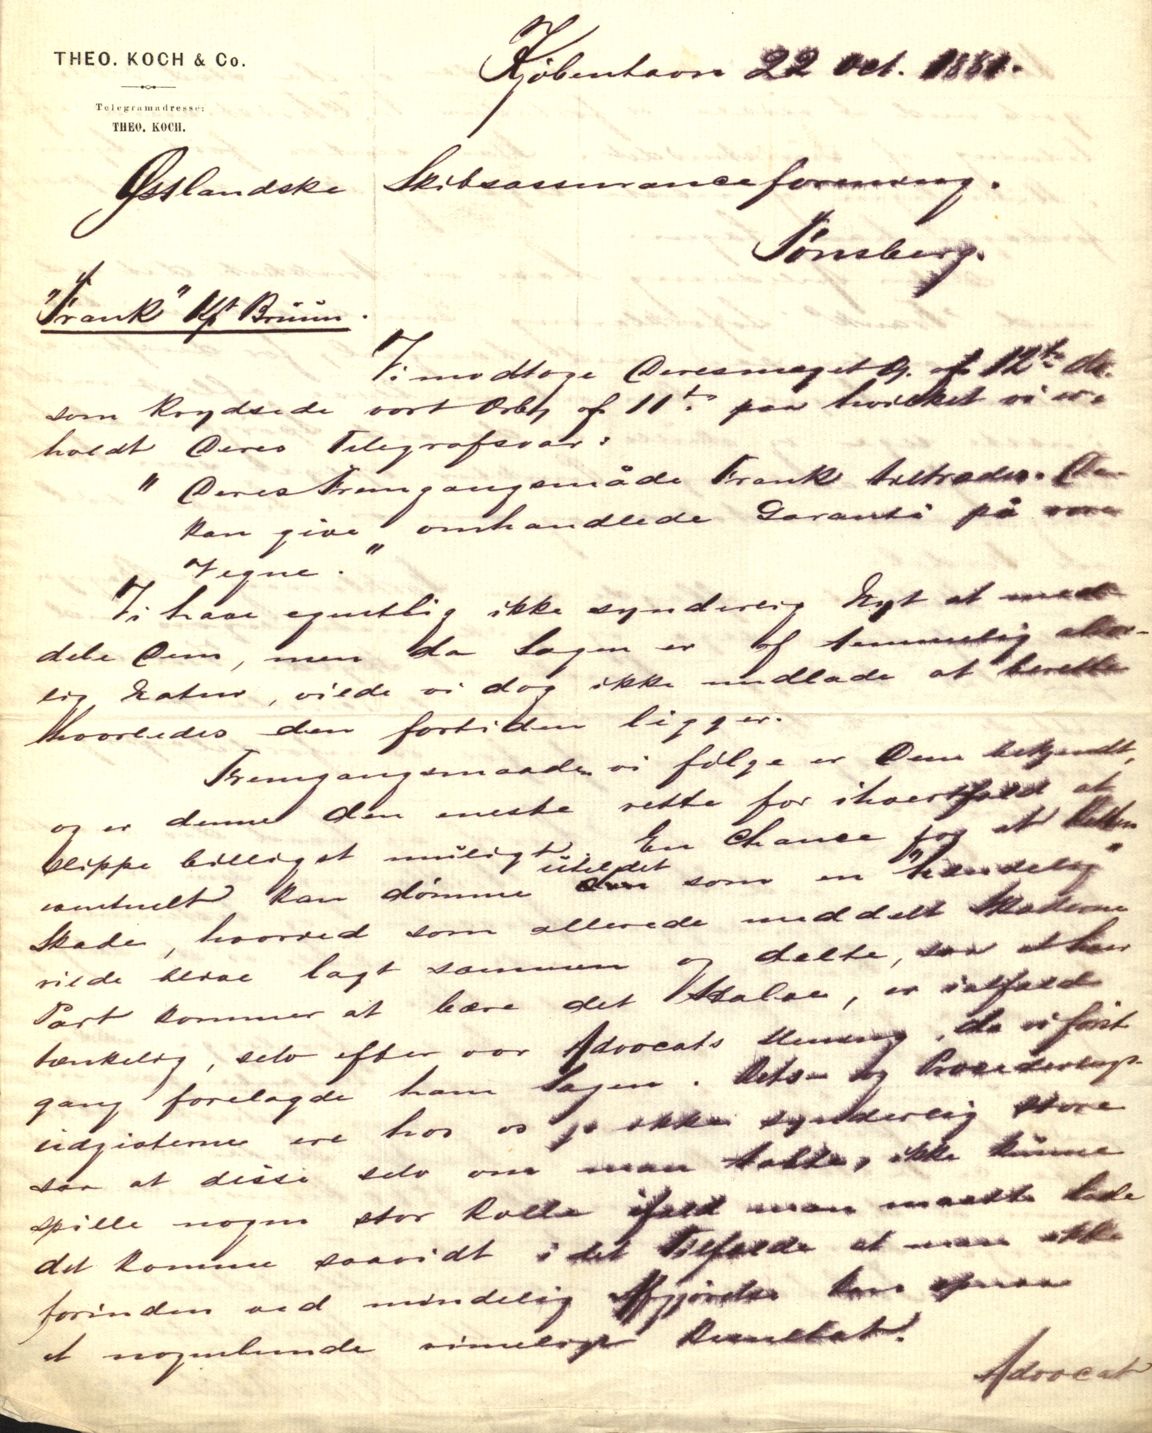 THEO. KOCH & Co.
Telegramadresse:
THEO. KOCH.
Kjöbenhavn 22 Oct. 1881.
Østlandske Skibsassuranceforening.
Tönsberg.
"Frank" Kpt Brüün.
Vi modtoge Deres meget Ær. af 12te ds.
som krydsede vort Ærb. af 11te paa hvilket vi er-
holdt Deres Telegrafsvar:
" Deres Fremgangsmåde Frank tiltrædes. De
kan give omhandlede Garanti på vore
Vegne."
Vi have egentlig ikke synderlig Nyt at med-
dele Dem, men da Sagen er af temmelig alvor-
lig Natur, vilde vi dog ikke undlade at berette
hvorledes den fortiden ligger.
Fremgangsmaaden vi fölge er Dem bekjendt,
og er denne den eneste rette for ihvertfald at
slippe billigst müligt. En Chance for at Retten
eventuelt kan dömme üheldet som en "hændelig"
Skade, hvorved som allerede meddelt Skaderne
vilde blive lagt sammen og delte, saa at hver
Part kommer at bære det Halve, er ialfald
tænkelig, selv efter vor Advocats Mening, da vi först-
gang forelagde ham Sagen. Rets- og
üdgifterne ere hos os jo ikke synderlig store
saa at disse selv om man tabte, ikke künne
spille nogen stor Rolle ifald man maatte lade
det komme saavidt i det Tilfælde at man ikke
forinden ved mindelig Afgjörelse kan opnaa
et nogenlunde rimeligt Resultat.
Advocat